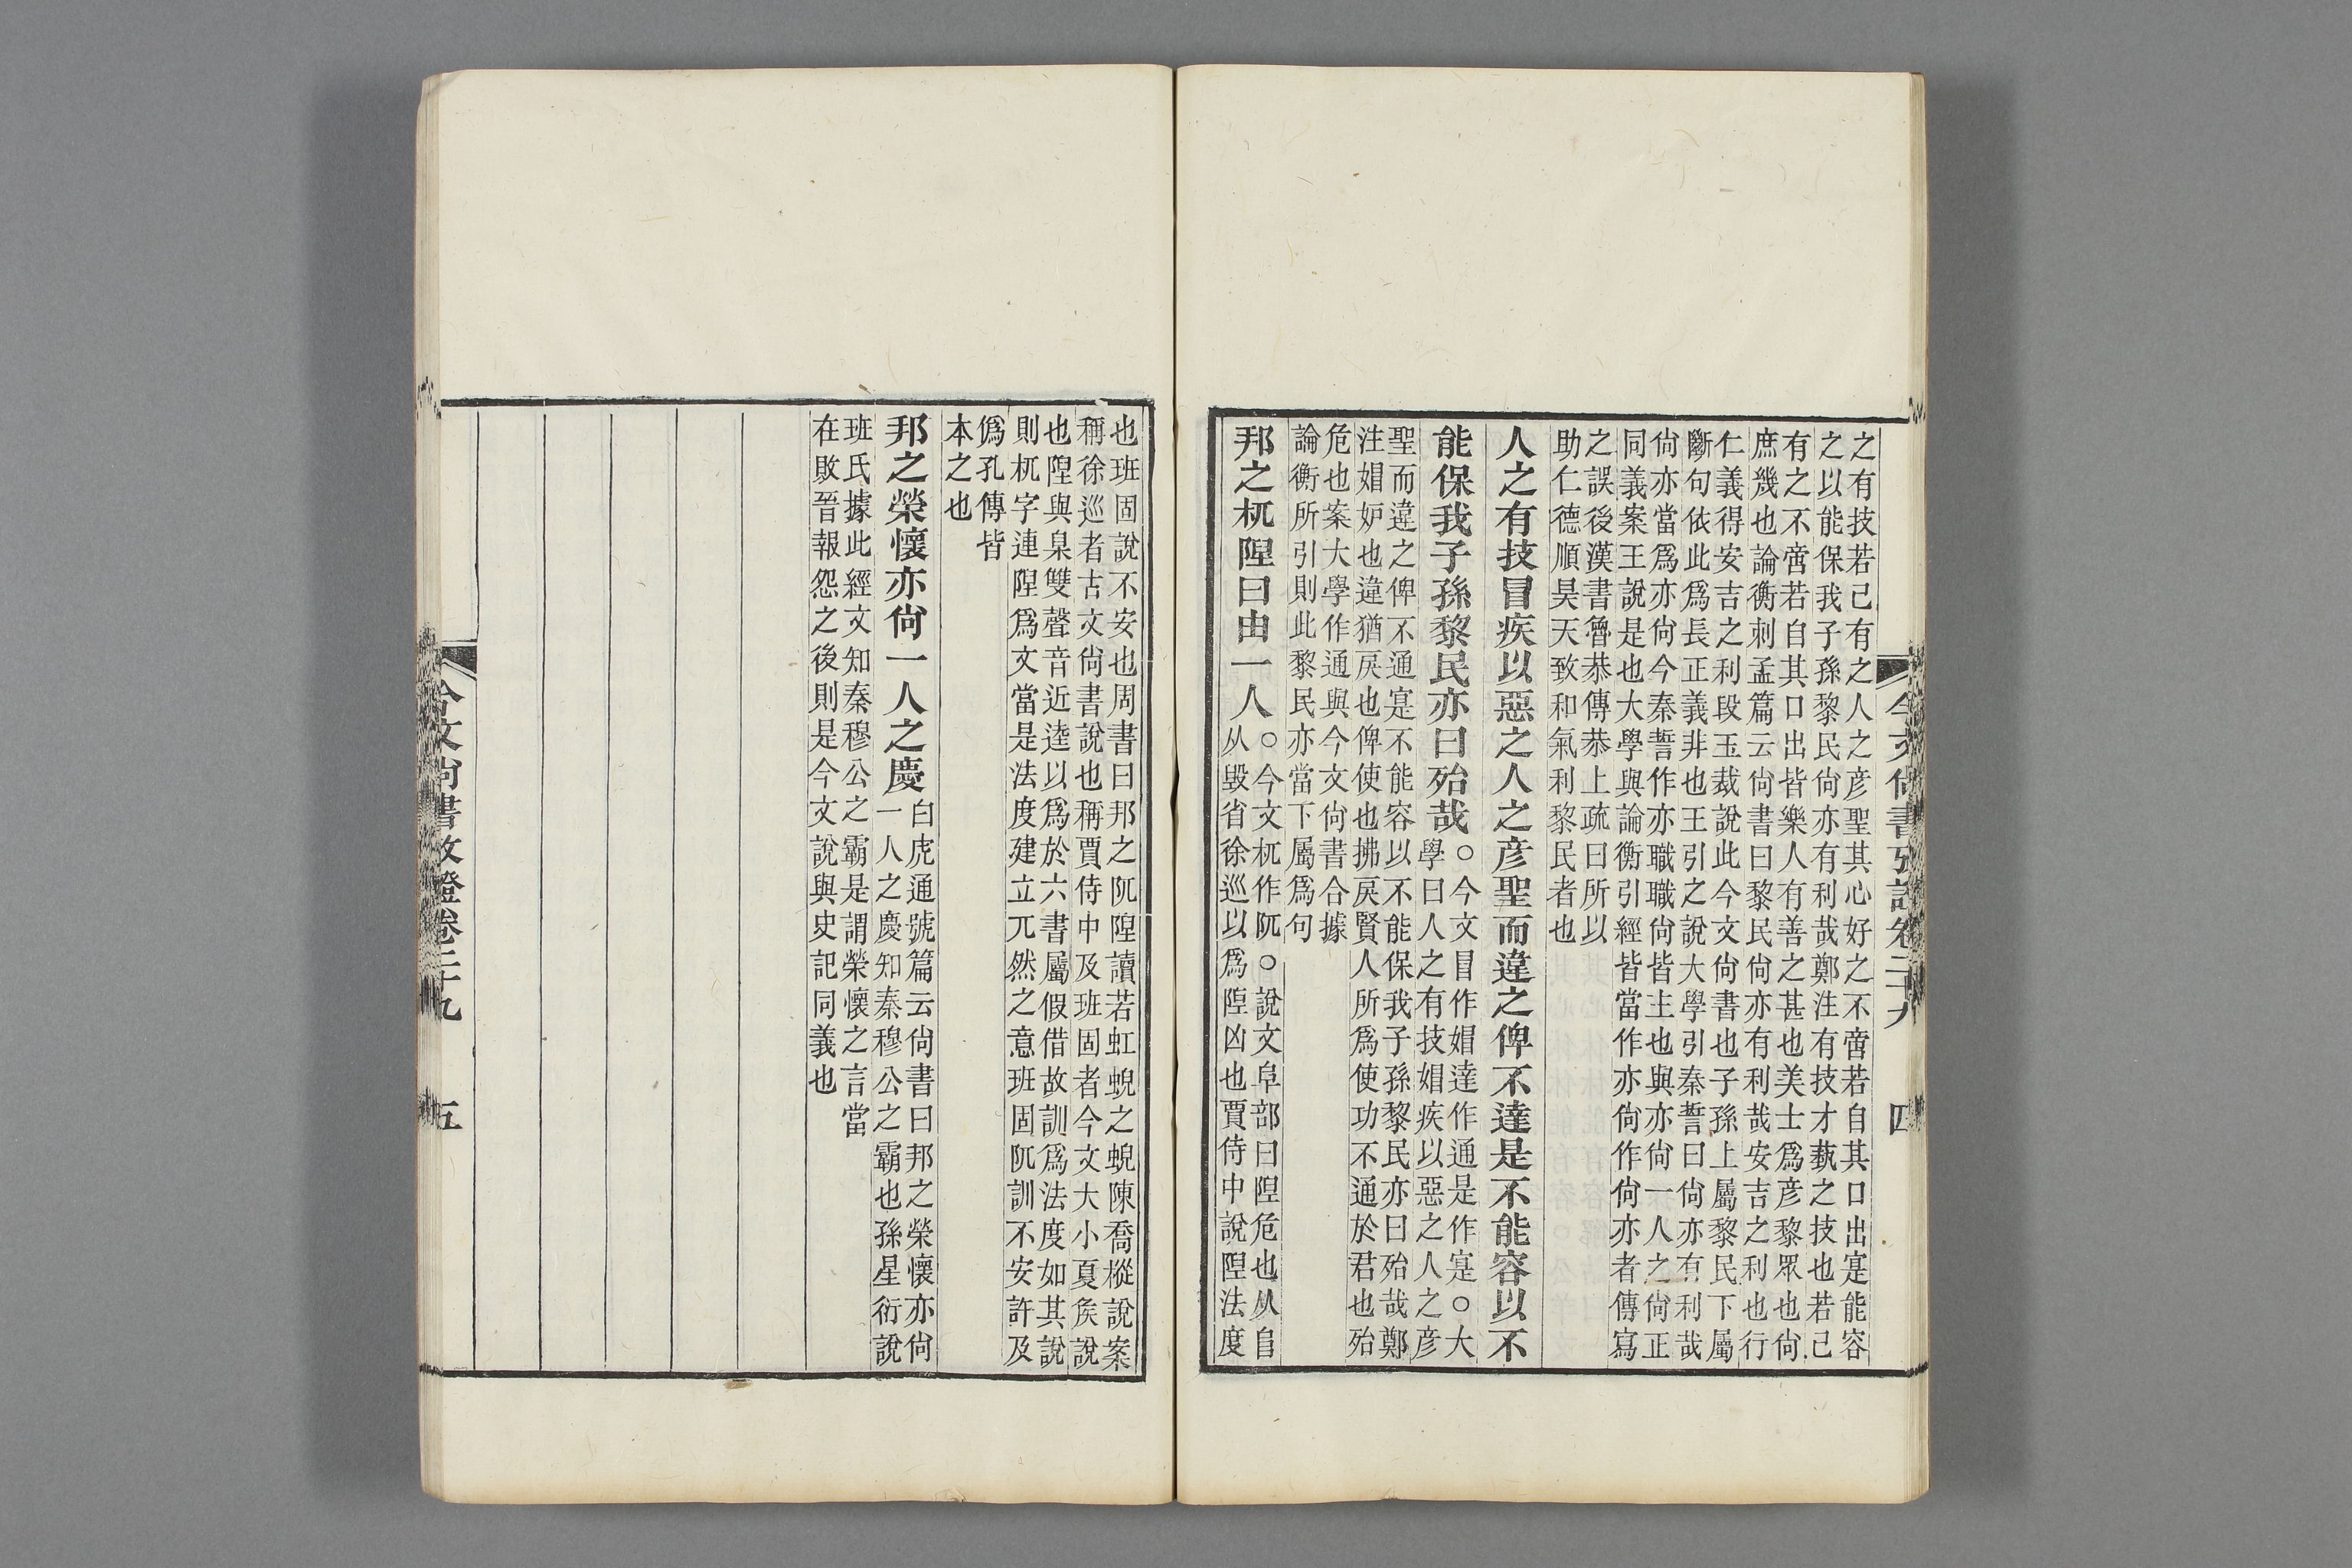 之有技若己有之人之彦聖其心好之不啻若自其口出寔能容
之以能保我子孫黎民尙亦有利哉鄭注有技才藝之技也若己
有之不啻若自其口出皆樂人有善之甚也美士爲彦黎眾也尙
庶幾也論衡刺孟篇云尙書曰黎民尙亦有利哉安吉之利也行
仁義得安吉之利段玉裁說此今文尙書也子孫上屬黎民下屬
斷句依此爲長正義非也王引之說大學引秦誓曰尙亦有利哉
尙亦當爲亦尙今秦誓作亦職職尙皆主也與亦尙一人之尙正
同義案王說是也大學與論衡引經皆當作亦尙作尙亦者傳寫
之誤後漢書魯恭傳恭上疏曰所以
助仁德順昊天致和氣利黎民者也
人之有技冒疾以惡之人之彦聖而違之俾不達是不能容以不
能保我子孫黎民亦曰殆哉
○今文冒作媢達作通是作寔○大
學曰人之有技媢疾以惡之人之彦
聖而違之俾不通寔不能容以不能保我子孫黎民亦曰殆哉鄭
注媢妒也違猶戾也俾使也拂戾賢人所爲使功不通於君也殆
危也案大學作通與今文尙書合據
論衡所引則此黎民亦當下屬爲句
邦之杌隉曰由一人
○今文杌作阢○說文𨸏部曰隉危也从𨸏
从毀省徐巡以爲隉凶也賈侍中說隉法度
今文尙書攷證卷二十九
四
也班固說不安也周書曰邦之阢隉讀若虹蜺之蜺陳喬樅說案
稱徐巡者古文尙書說也稱賈侍中及班固者今文大小夏矦說
也隉與臬雙聲音近逵以爲於六書屬假借故訓爲法度如其說
則杌字連隉爲文當是法度建立兀然之意班固阢訓不安許及
僞孔傳皆
本之也
邦之榮懷亦尙一人之慶
白虎通號篇云尙書曰邦之榮懷亦尙
一人之慶知秦穆公之霸也孫星衍說
班氏據此經文知秦穆公之霸是謂榮懷之言當
在敗晉報怨之後則是今文說與史記同義也
今文尙書攷證卷二十九
五